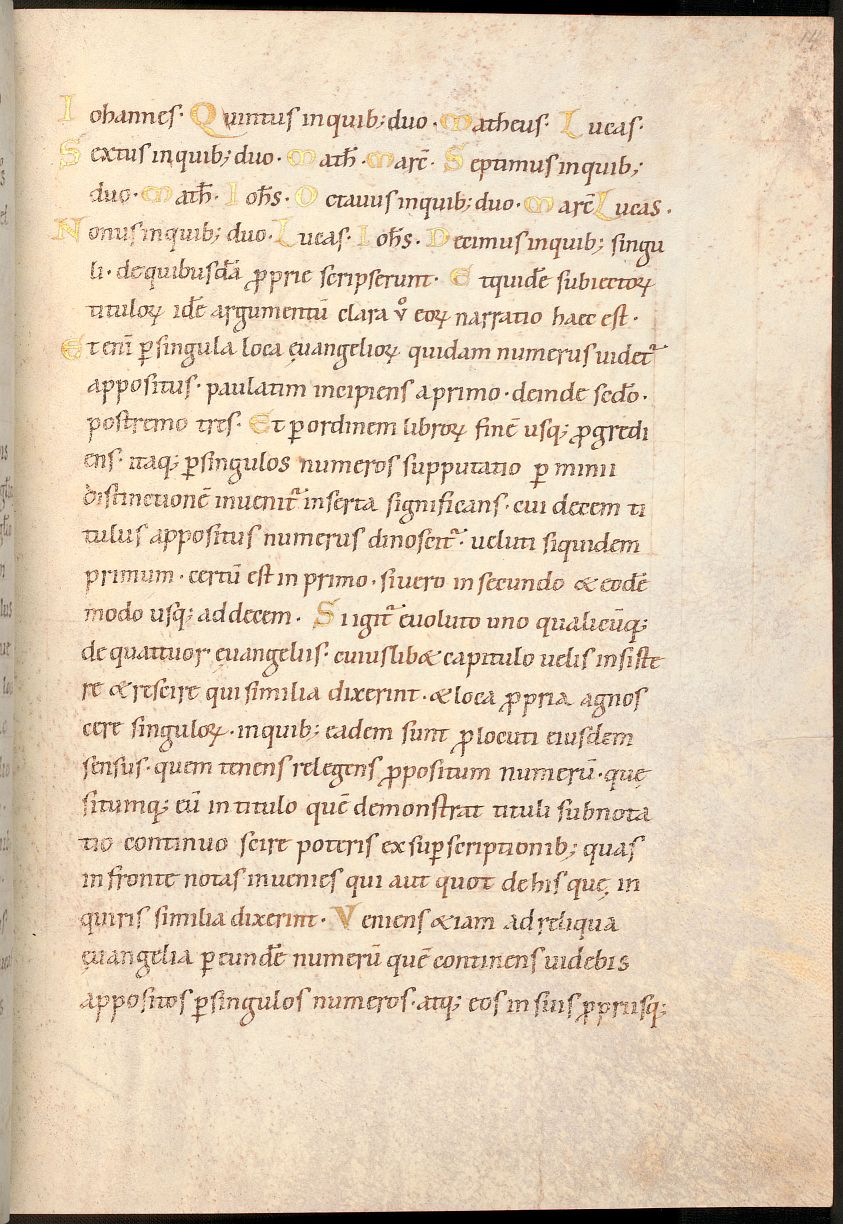 Iohannes· Quintus inquib; duo· Matheus· Lucas·
Sextus inquib; duo· Math̅· Marc̅· Septimus inquib;
duo· Math̅· Ioh̅s· Octauus inquib; duo· Marc̅ Lucas·
Nonus inquib; duo· Lucas· Ioh̅s· Decimus inquib; singu
li· de quibusdā ꝓprie scripserunt· Et quidē subiectoꝝ
tituloꝝ idē argumentū clara v̊ eoꝝ narratio haec est·
Et eni̅ ꝑ singula loca ęuangelioꝝ quidam numerus uidet᷑
appositus· paulatim incipiens a primo· deinde sēdo·
postremo tres· Et ꝑ ordinem libroꝝ finē usq; ꝓgredi
ens· itaq; ꝑ singulos numeros supputatio ꝑ minii
distinctionē inuenit᷑ inserta significans· cui decem ti
tulus appositus numerus dinoscit᷑· ueluti siquidem
primum· certū est in primo· si uero in secundo & eodē
modo usq; ad decem· Si igit᷑ euoluto uno qualicūq;
de quattuor ęuangeliis· cuiuslib& capitulo uelis insiste
re & rescire qui similia dixerint· & loca ꝓpria agnos
cere singuloꝝ· inquib; eadem sunt ꝓlocuti eiusdem
sensus· quem tenens relegens ꝓpositum numerū· quę
situmq; eū in titulo quē demonstrat tituli subnota
tio continuo scire poteris ex suꝑscriptionib; quas
in fronte notas inuenies qui aut quot de his quę in
quiris similia dixerint· Veniens &iam ad reliqua
ęuangelia ꝑ eundē numerū quē continens uidebis
appositos ꝑ singulos numeros· atq; eos in suis ꝓpriisq;